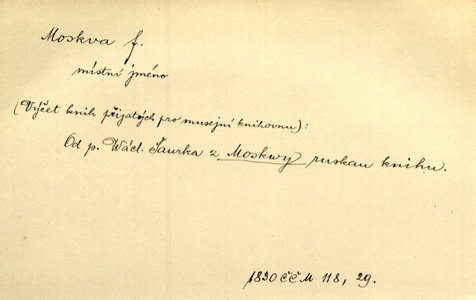 Moskva f.
místní jméno
(Výčet knih přijatých pro musejní knihovnu):
Od p. Wácl. Šaurka z Moskwy ruskau knihu.
1830 ČČM 118, 29.